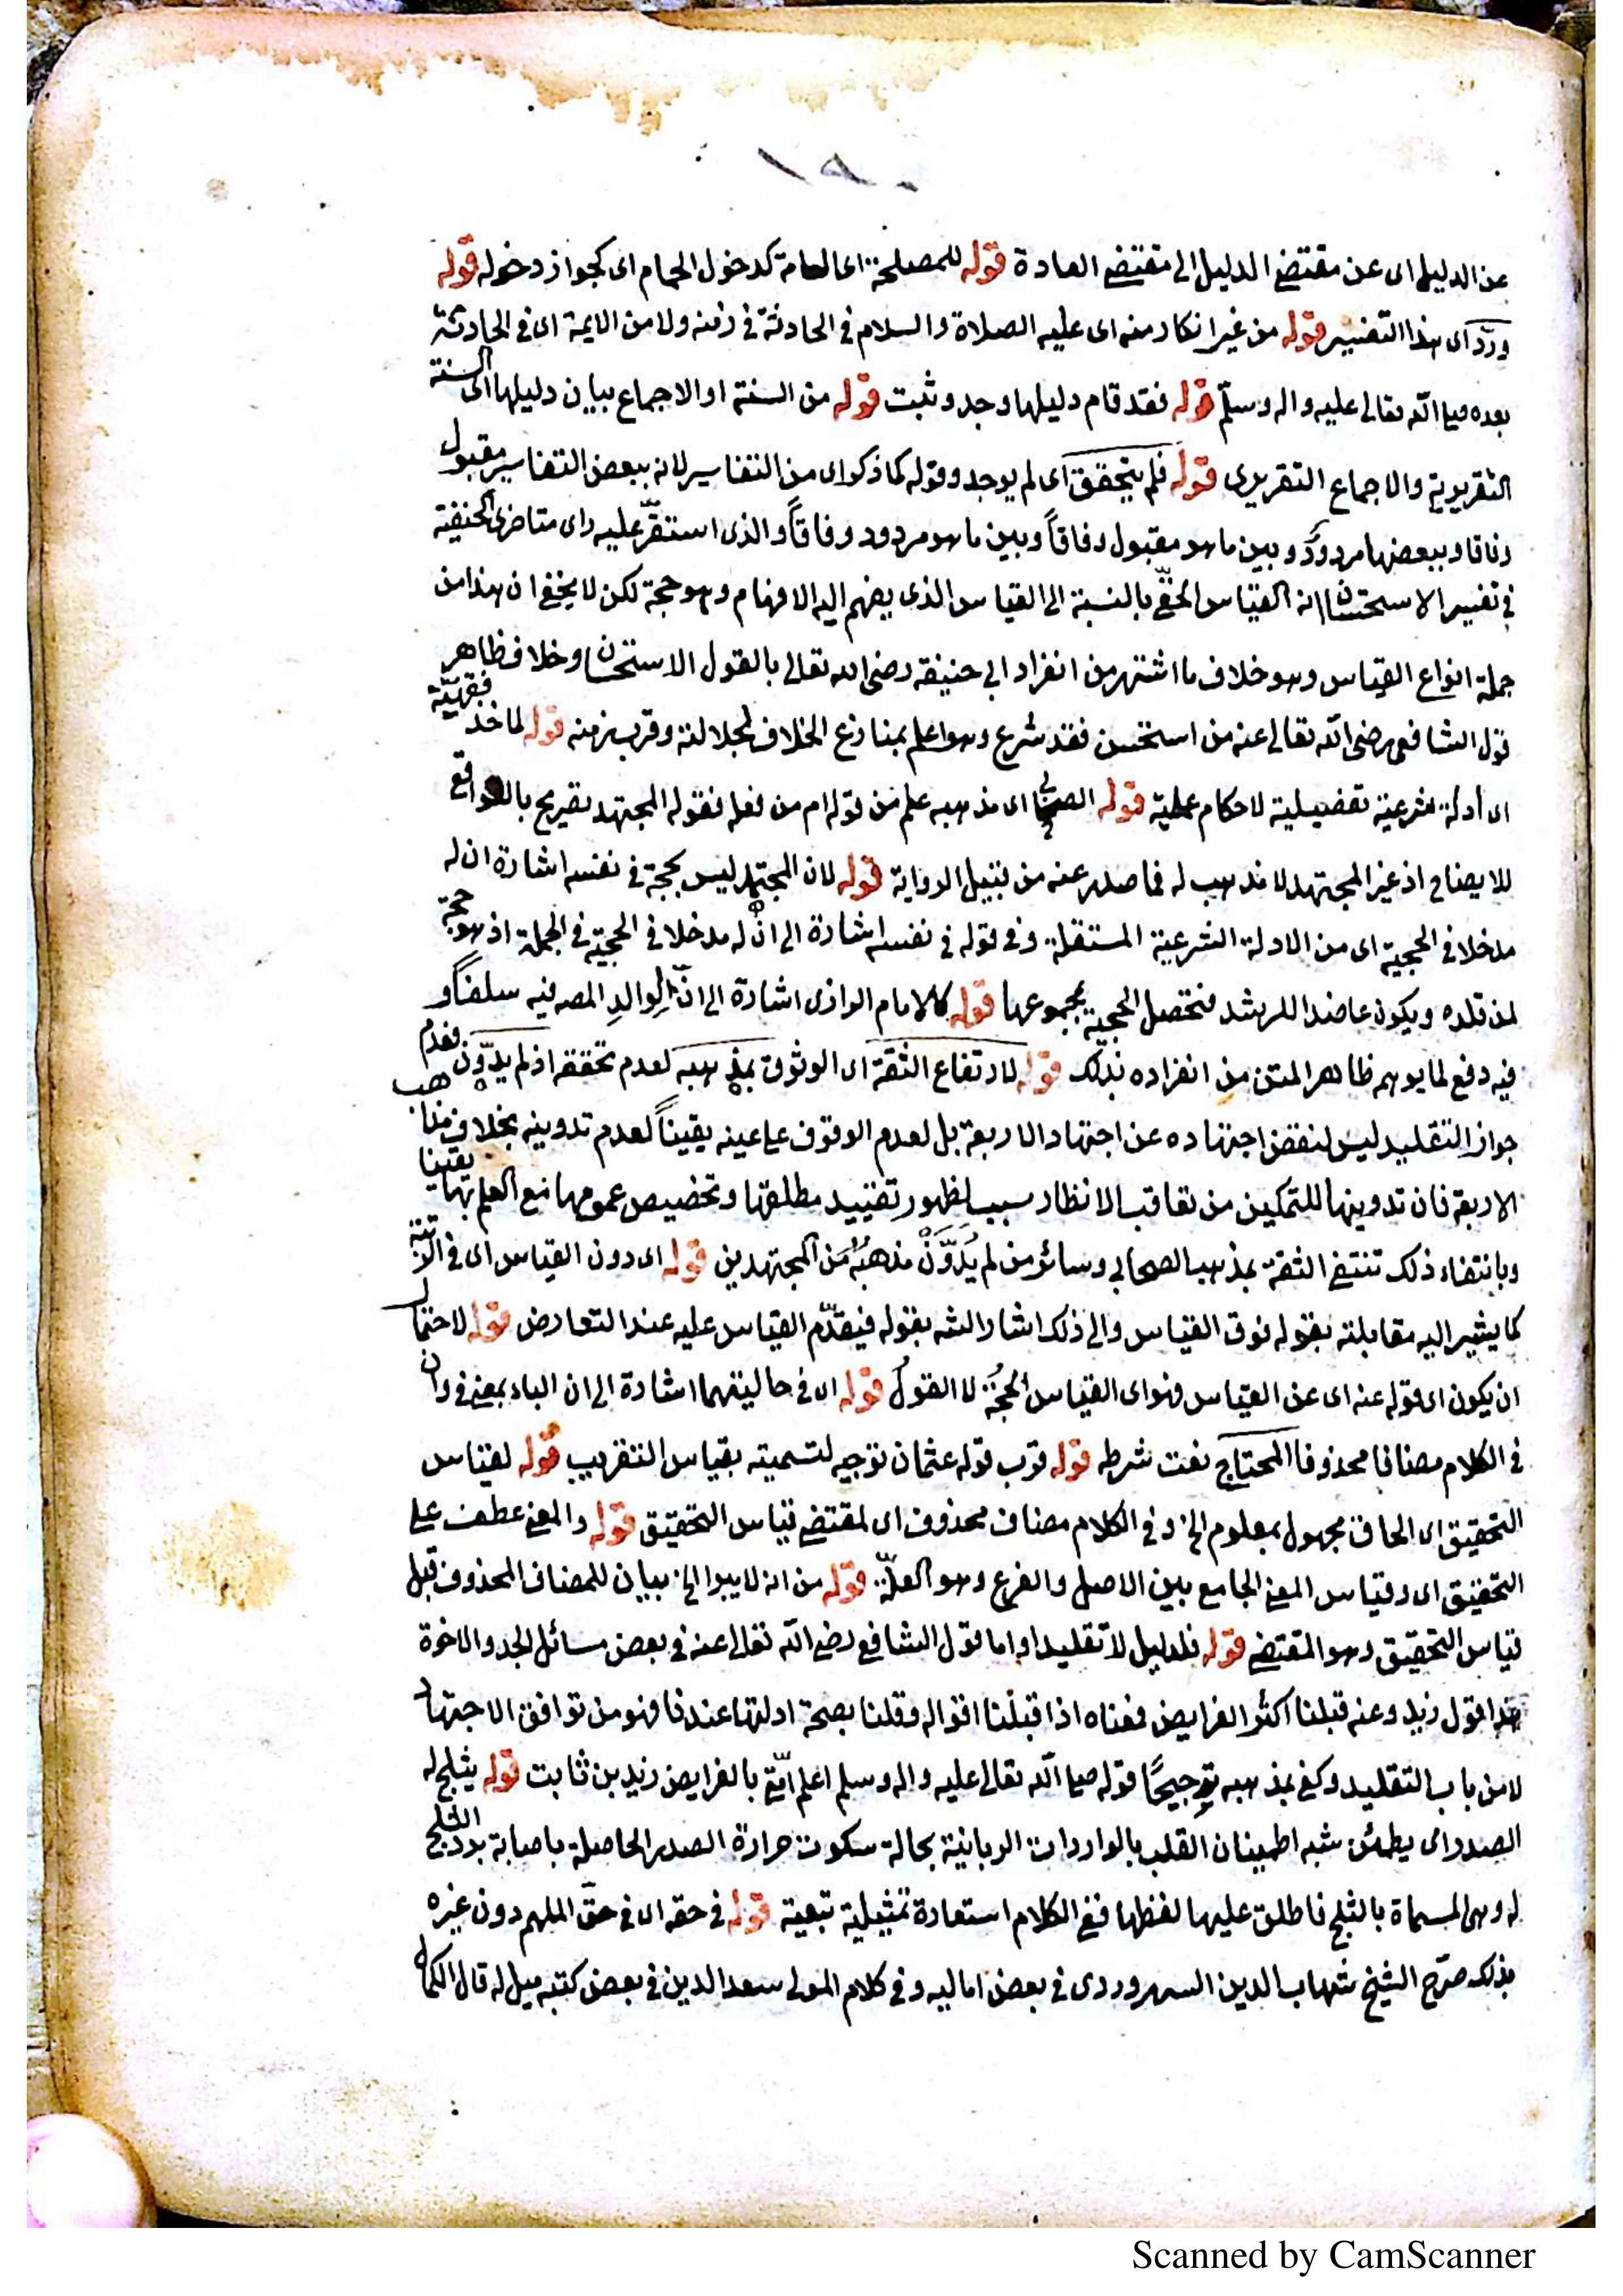 ١٩٠
عن الدليل اى عن مقتضى الدليل الى مقتضى العادة قوله للمصلحة اى العامة كدخول الحمام اى كجواز دخوله قوله
ورد اى هذا التفسير قوله من غير انكار منه اى عليه الصلاة والسلام فى الحادثة فى زمنه ولا من الايمة اى فى الحادثة
بعده صلى الله تعالى عليه واله وسلم قوله فقد قام دليلها وجد وثبت قوله من السنة او الاجماع بيان دليلها اى السنة
التقريرية والاجماع التقريرى قوله فلم يتحقق اى لم يوجد وقوله كما ذكر اى من التفاسير لانه ببعض التفاسير مقبول
وفاقا وببعضها مردود وبين ما هو مقبول وفاقاً وبين ما هو مردود وفاقاً والذى استقرّ عليه راى متاخرى الحنفية
فى تفسير الاستحسان انه القياس الخفىّ بالنسبة الى القياس الذى يفهم اليه الافهام وهو حجة لكن لا يخفى ان هذا من
جملة انواع القياس وهو خلاف ما اشتهر من انفراد ابى حنيفة رضى الله تعالى بالقول الاستحسان وخلاف ظاهر
قول الشافعى رضى الله تعالى عنه من استحسن فقد شرع وهو اعلم بمنازع الخلاف لجلالته وقرب زمنه قوله لماخذ فقهيّة
اى أدلة شرعية تفصيلية لاحكام عملية قوله الصحابى اى مذهبه علم من قوله ام من فعله فقوله المجتهد تصريح بالواقع
للايضاح اذ غير المجتهد لا مذهب له فما صدر عنه من قبيل الرواية قوله لان المجتهد ليس بحجة فى نفسه اشارة ان له
مدخلا فى الحجية اى من الادلة الشرعية المستقلة وفى قوله فى نفسه اشارة الى انّ له مدخلا فى الحجية فى الجملة اذ هو حجة
لمن قلده ويكون عاضدا للمرشد فتحصل الحجية بمجموعها قوله كالامام الرازى اشارة الى انّ لوالدِ المص فيه سلفاً و
فيه دفع لما يوهم ظاهر المتن من انفراده بذلك قوله لارتفاع الثقة اى الوثوق بمذهبه لعدم تحققه اذ لم يدوّن فعدم
جواز التقليد ليس لنقض اجتهاده عن اجتهاد الاربعة بل لعدم الوقوف على عينه يقيناً لعدم تدوينه بخلاف مذاهب
الاربعة فان تدوينها للتمكين من تعاقب الانظار سبب لظهور تقييد مطلقها وتخصيص عمومها مع العلم بها يقينا
وبانتفاء ذلك تنتفى الثقة بمذهب الصحابى وسائر من لم يُدَوَّنْ مذهبُه من المجتهدين قوله اى دون القياس اى فى الرتبة
كما يشير اليه مقابلته بقوله فوق القياس والى ذلك اشار الشه بقوله فيقدّم القياس عليه عند التعارض قوله لاحتمال
ان يكون اى قوله عنه اى عن القياس فهو اى القياس الحجةُ لا القولُ قوله اى فى حاليتهما اشارة الى ان الباء بمعنى فى وان
فى الكلام مضافا محذوفا المحتاج نعت شرطه قوله قرب قوله عثمان توجيه لتسميته بقياس التقريب قوله لقياس
التحقيق اى الحاق مجهول بمعلوم الخ وفى الكلام مضاف محذوف اى لمقتضى قياس التحقيق قوله والمعنى عطف على
التحقيق اى وقياس المعنى الجامع بين الاصل والفرع وهو العلّة قوله من انه لا يبرا الخ بيان للمضاف المحذوف قبل
قياس التحقيق وهو المقتضى قوله فلدليل لا تقليدا واما قول الشافعى رضى الله تعالى عنه فى بعض مسائل الجد والاخوة
هذا قول زيد وعنه قبلنا اكثر الفرايض فمعناه اذا قبلنا اقواله وقلنا بصحة ادلتها عندنا فهو من توافق الاجتهاد
لا من باب التقليد وكفى بمذهبه ترجيحًا قوله صلى الله تعالى عليه واله وسلم اعلم امّتى بالفرايض زيد بن ثابت قوله يثلج له
الصدر اى يطمئن شبه اطمينان القلب بالواردات الربانية بحالة سكوت حرارة الصدر الحاصلة باصابة برد الثلج
له وهى المسماة بالثلج فاطلق عليها لفظها ففى الكلام استعارة تمثيلية تبعية قوله فى حقه اى فى حقّ الملهم دون غيره
بذلك صرّح الشيخ شهاب الدين السهروردى فى بعض اماليه وفى كلام المولى سعد الدين فى بعض كتبه ميل له قال الكمال
Scanned by CamScanner